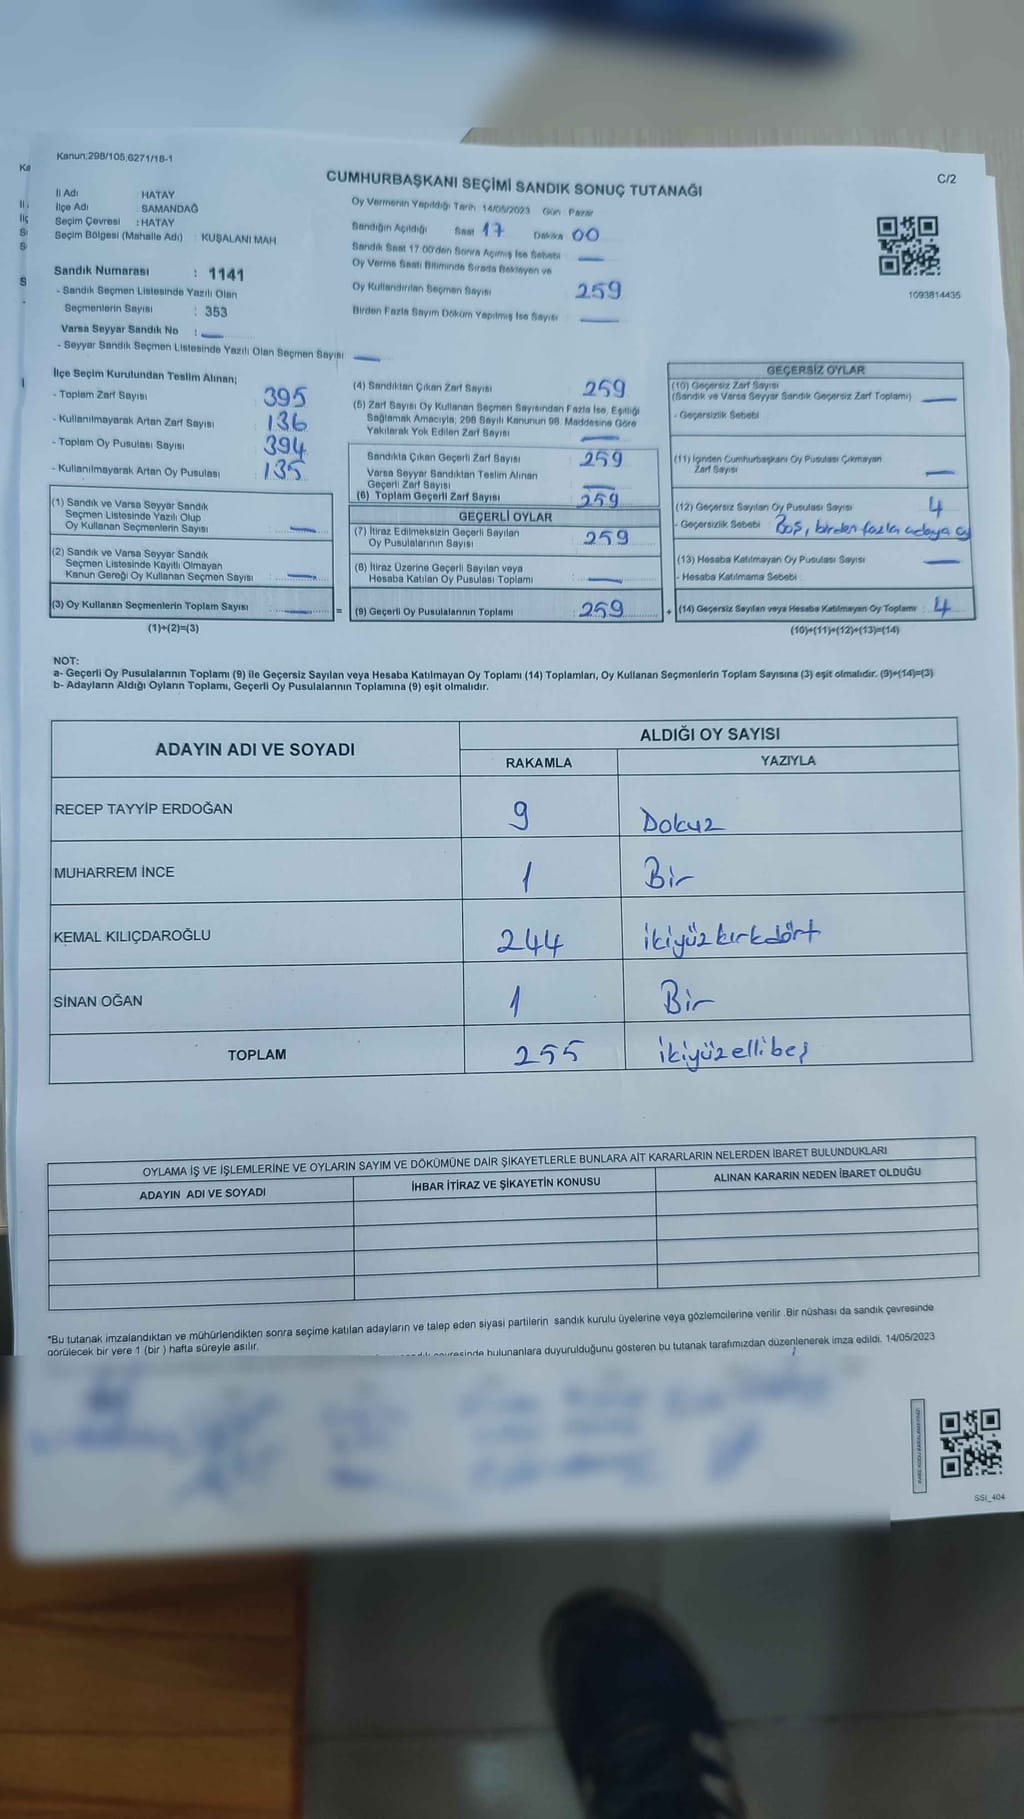 Kanun;298/105;6271/18-1
C/2
CUMHURBAŞKANI SEÇİMİ SANDIK SONUÇ TUTANAĞI
İl Adı : HATAY
İlçe Adı : SAMANDAĞ
Seçim Çevresi : HATAY
Seçim Bölgesi (Mahalle Adı) : KUŞALANI MAH
Sandık Numarası : 1141
- Sandık Seçmen Listesinde Yazılı Olan
Seçmenlerin Sayısı : 353
Varsa Seyyar Sandık No :
- Seyyar Sandık Seçmen Listesinde Yazılı Olan Seçmen Sayısı
Oy Vermenin Yapıldığı Tarih 14/05/2023 Gün Pazar
Sandığın Açıldığı Saat 17 Dakika 00
Sandık Saat 17:00'den Sonra Açımış İse Sebebi
Oy Verme Saati Bitiminde Sırada Bekleyen ve
Oy Kullandırılan Seçmen Sayısı 259
Birden Fazla Sayım Döküm Yapılmış İse Sayısı
1093814435
İlçe Seçim Kurulundan Teslim Alınan;
- Toplam Zarf Sayısı 395
- Kullanılmayarak Artan Zarf Sayısı 136
- Toplam Oy Pusulası Sayısı 394
- Kullanılmayarak Artan Oy Pusulası 135
(1) Sandık ve Varsa Seyyar Sandık
Seçmen Listesinde Yazılı Olup
Oy Kullanan Seçmenlerin Sayısı
(2) Sandık ve Varsa Seyyar Sandık
Seçmen Listesinde Kayıtlı Olmayan
Kanun Gereği Oy Kullanan Seçmen Sayısı
(3) Oy Kullanan Seçmenlerin Toplam Sayısı =
(1)+(2)=(3)
(4) Sandıktan Çıkan Zarf Sayısı 259
(5) Zarf Sayısı Oy Kullanan Seçmen Sayısından Fazla İse, Eşitliği
Sağlamak Amacıyla; 298 Sayılı Kanunun 98. Maddesine Göre
Yakılarak Yok Edilen Zarf Sayısı
Sandıkta Çıkan Geçerli Zarf Sayısı 259
Varsa Seyyar Sandıktan Teslim Alınan
Geçerli Zarf Sayısı
(6) Toplam Geçerli Zarf Sayısı 259
GEÇERLİ OYLAR
(7) İtiraz Edilmeksizin Geçerli Sayılan
Oy Pusulalarının Sayısı 259
(8) İtiraz Üzerine Geçerli Sayılan veya
Hesaba Katılan Oy Pusulası Toplamı
(9) Geçerli Oy Pusulalarının Toplamı 259 +
GEÇERSİZ OYLAR
(10) Geçersiz Zarf Sayısı
(Sandık ve Varsa Seyyar Sandık Geçersiz Zarf Toplamı)
- Geçersizlik Sebebi
(11) İçinden Cumhurbaşkanı Oy Pusulası Çıkmayan
Zarf Sayısı
(12) Geçersiz Sayılan Oy Pusulası Sayısı 4
- Geçersizlik Sebebi Boş, birden fazla adaya oy
(13) Hesaba Katılmayan Oy Pusulası Sayısı
- Hesaba Katılmama Sebebi
(14) Geçersiz Sayılan veya Hesaba Katılmayan Oy Toplamı 4
(10)+(11)+(12)+(13)=(14)
NOT:
a- Geçerli Oy Pusulalarının Toplamı (9) ile Geçersiz Sayılan veya Hesaba Katılmayan Oy Toplamı (14) Toplamları, Oy Kullanan Seçmenlerin Toplam Sayısına (3) eşit olmalıdır. (9)+(14)=(3)
b- Adayların Aldığı Oyların Toplamı, Geçerli Oy Pusulalarının Toplamına (9) eşit olmalıdır.
ADAYIN ADI VE SOYADI
ALDIĞI OY SAYISI
RAKAMLA YAZIYLA
RECEP TAYYİP ERDOĞAN 9 Dokuz
MUHARREM İNCE 1 Bir
KEMAL KILIÇDAROĞLU 244 ikiyüzkırkdört
SİNAN OĞAN 1 Bir
TOPLAM 255 ikiyüzellibeş
OYLAMA İŞ VE İŞLEMLERİNE VE OYLARIN SAYIM VE DÖKÜMÜNE DAİR ŞİKAYETLERLE BUNLARA AİT KARARLARIN NELERDEN İBARET BULUNDUKLARI
ADAYIN ADI VE SOYADI İHBAR İTİRAZ VE ŞİKAYETİN KONUSU ALINAN KARARIN NEDEN İBARET OLDUĞU
*Bu tutanak imzalandıktan ve mühürlendikten sonra seçime katılan adayların ve talep eden siyasi partilerin sandık kurulu üyelerine veya gözlemcilerine verilir. Bir nüshası da sandık çevresinde
görülecek bir yere 1 (bir ) hafta süreyle asılır.
bulunanlara duyurulduğunu gösteren bu tutanak tarafımızdan düzenlenerek imza edildi. 14/05/2023
SSI_404